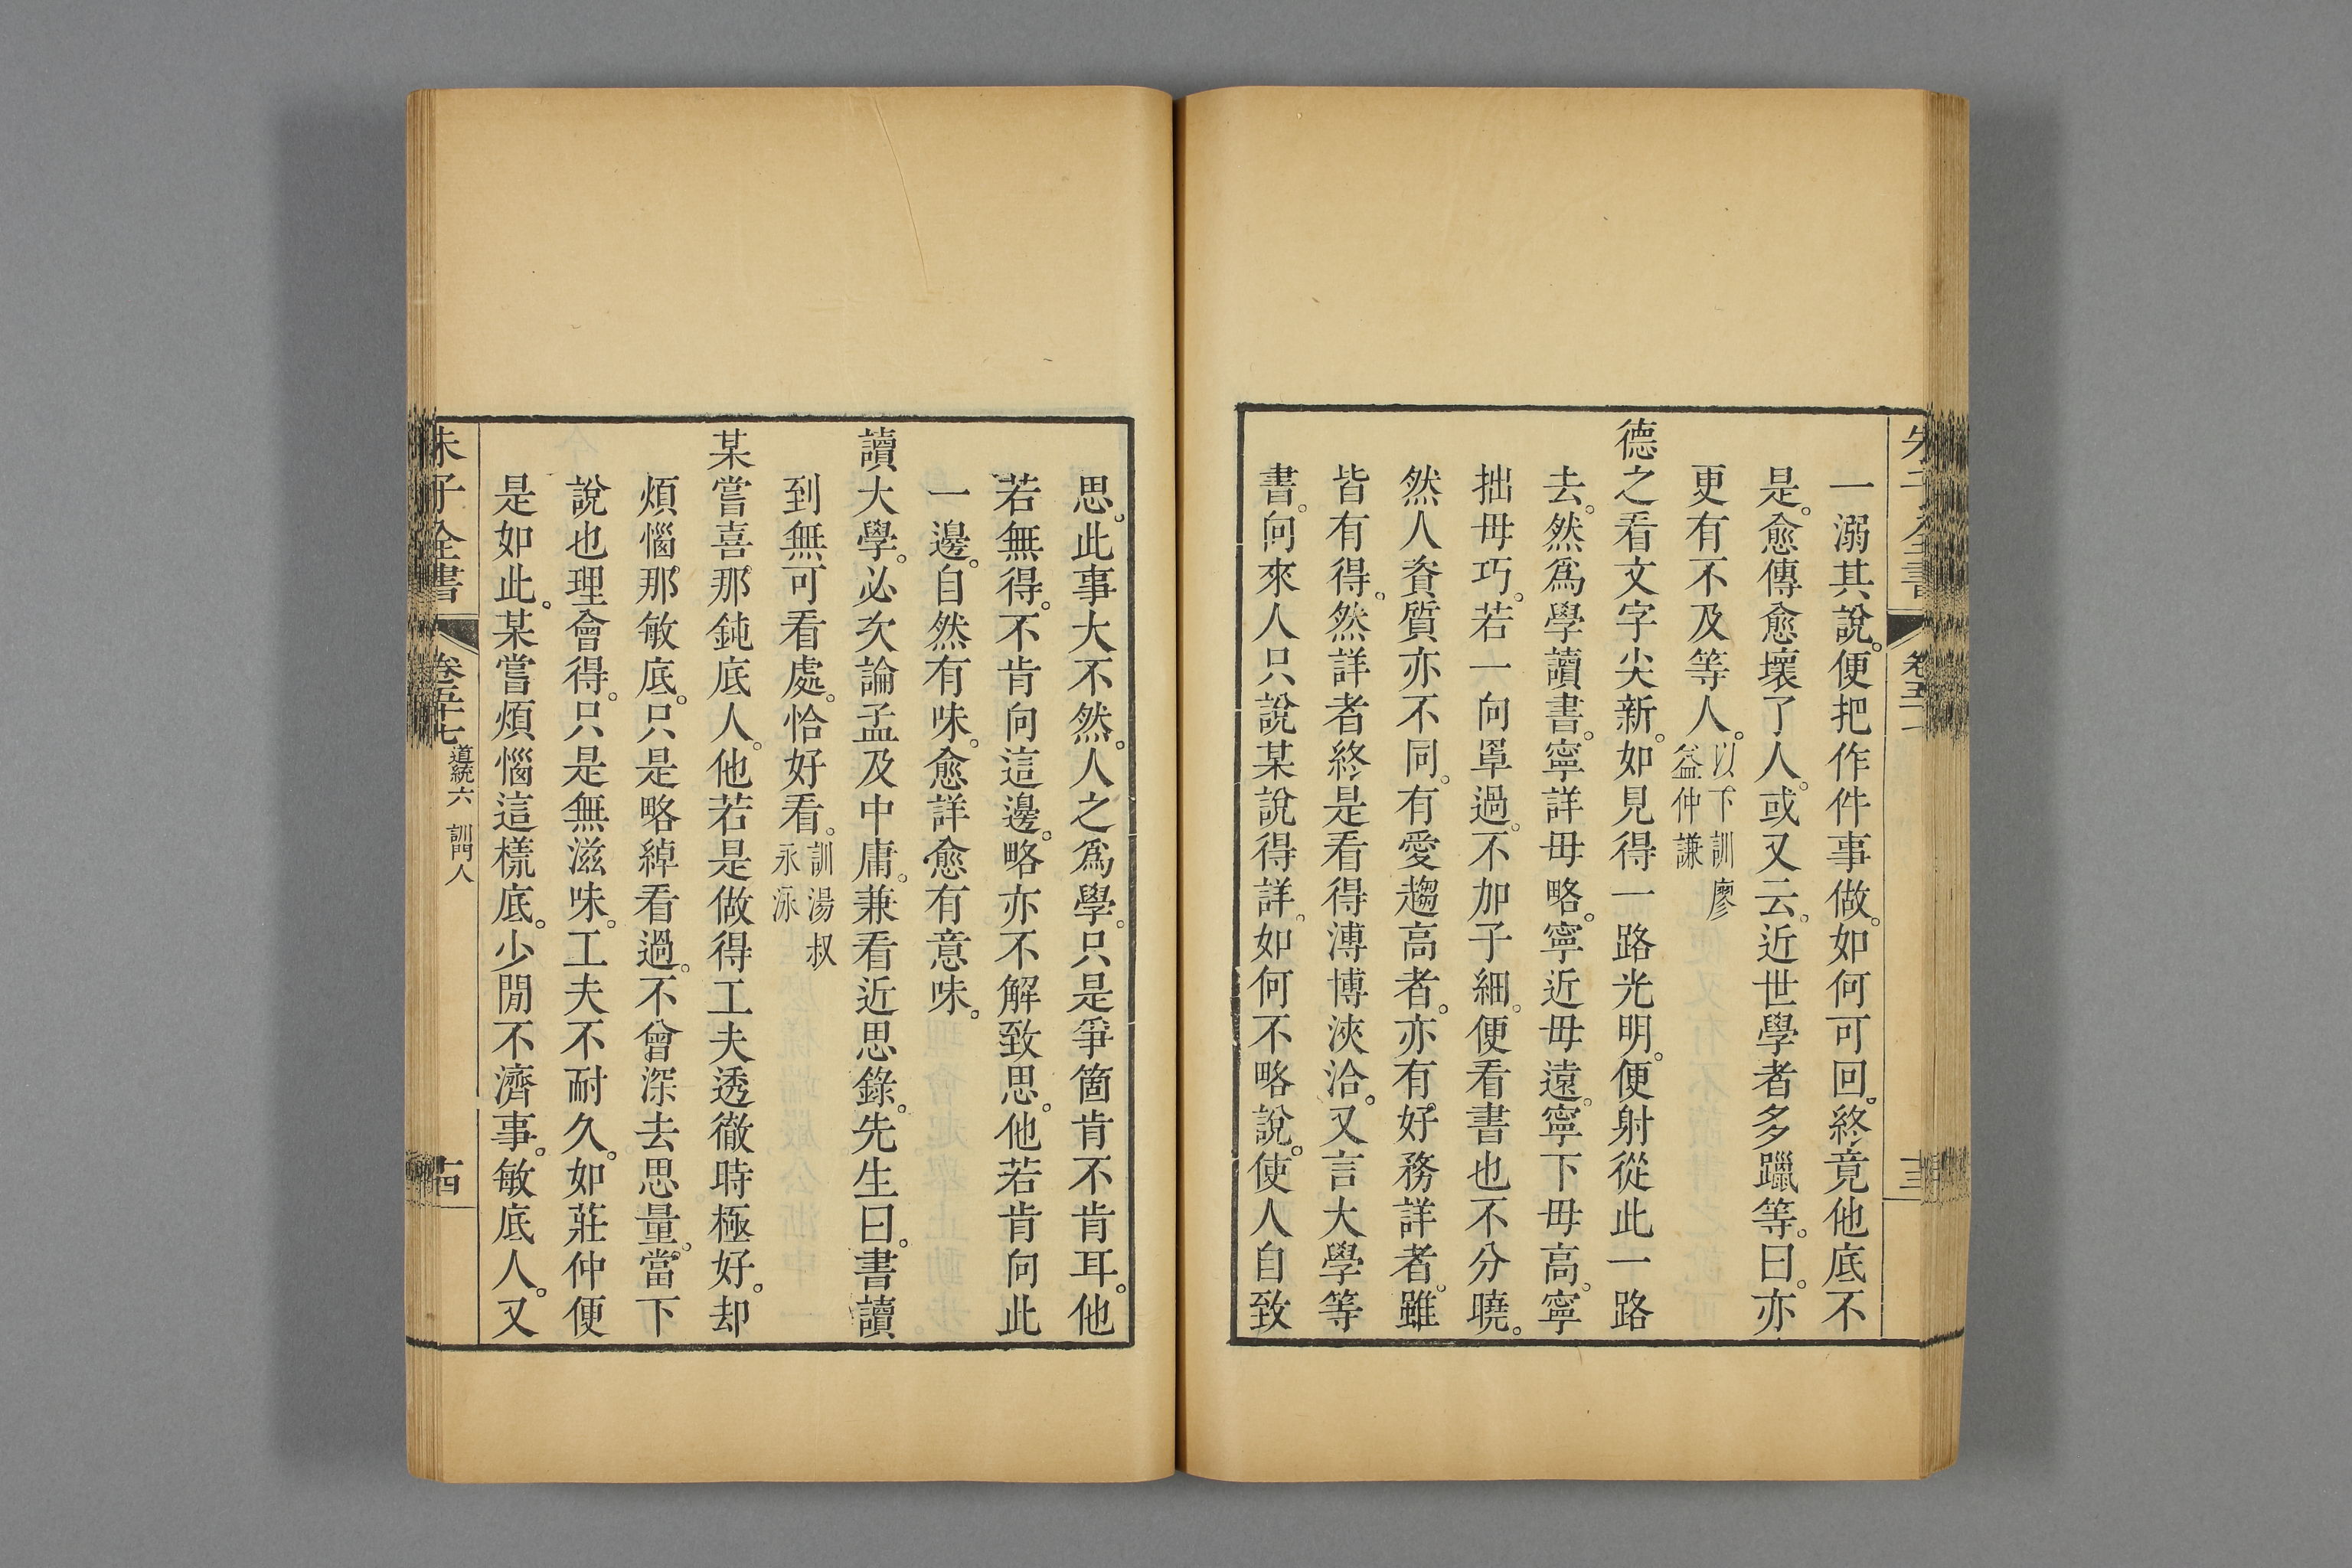 一溺其說。便把作件事做。如何可回。終竟他底不
是。愈傳愈壞了人。或又云。近世學者多躐等。曰。亦
更有不及等人。以下訓廖
益仲謙
德之看文字尖新。如見得一路光明。便射從此一路
去。然爲學讀書。寧詳毋略。寧近毋遠。寧下毋高。寧
拙毋巧。若一向罩過。不加子細。便看書也不分曉。
然人資質亦不同。有愛趨高者。亦有好務詳者。雖
皆有得。然詳者終是看得溥博浹洽。又言大學等
書。向來人只說某說得詳。如何不略說。使人自致
思。此事大不然。人之爲學。只是爭箇肯不肯耳。他
若無得。不肯向這邊。略亦不解致思。他若肯向此
一邊。自然有味。愈詳愈有意味。
讀大學。必次論孟及中庸。兼看近思錄。先生曰。書讀
到無可看處。恰好看。訓湯叔
永泳
某嘗喜那鈍底人。他若是做得工夫透徹時極好。却
煩惱那敏底。只是略綽看過。不曾深去思量。當下
說也理會得。只是無滋味。工夫不耐久。如莊仲便
是如此。某嘗煩惱這樣底。少閒不濟事。敏底人。又
朱子全書
卷五十七
道統六 訓門人
十四